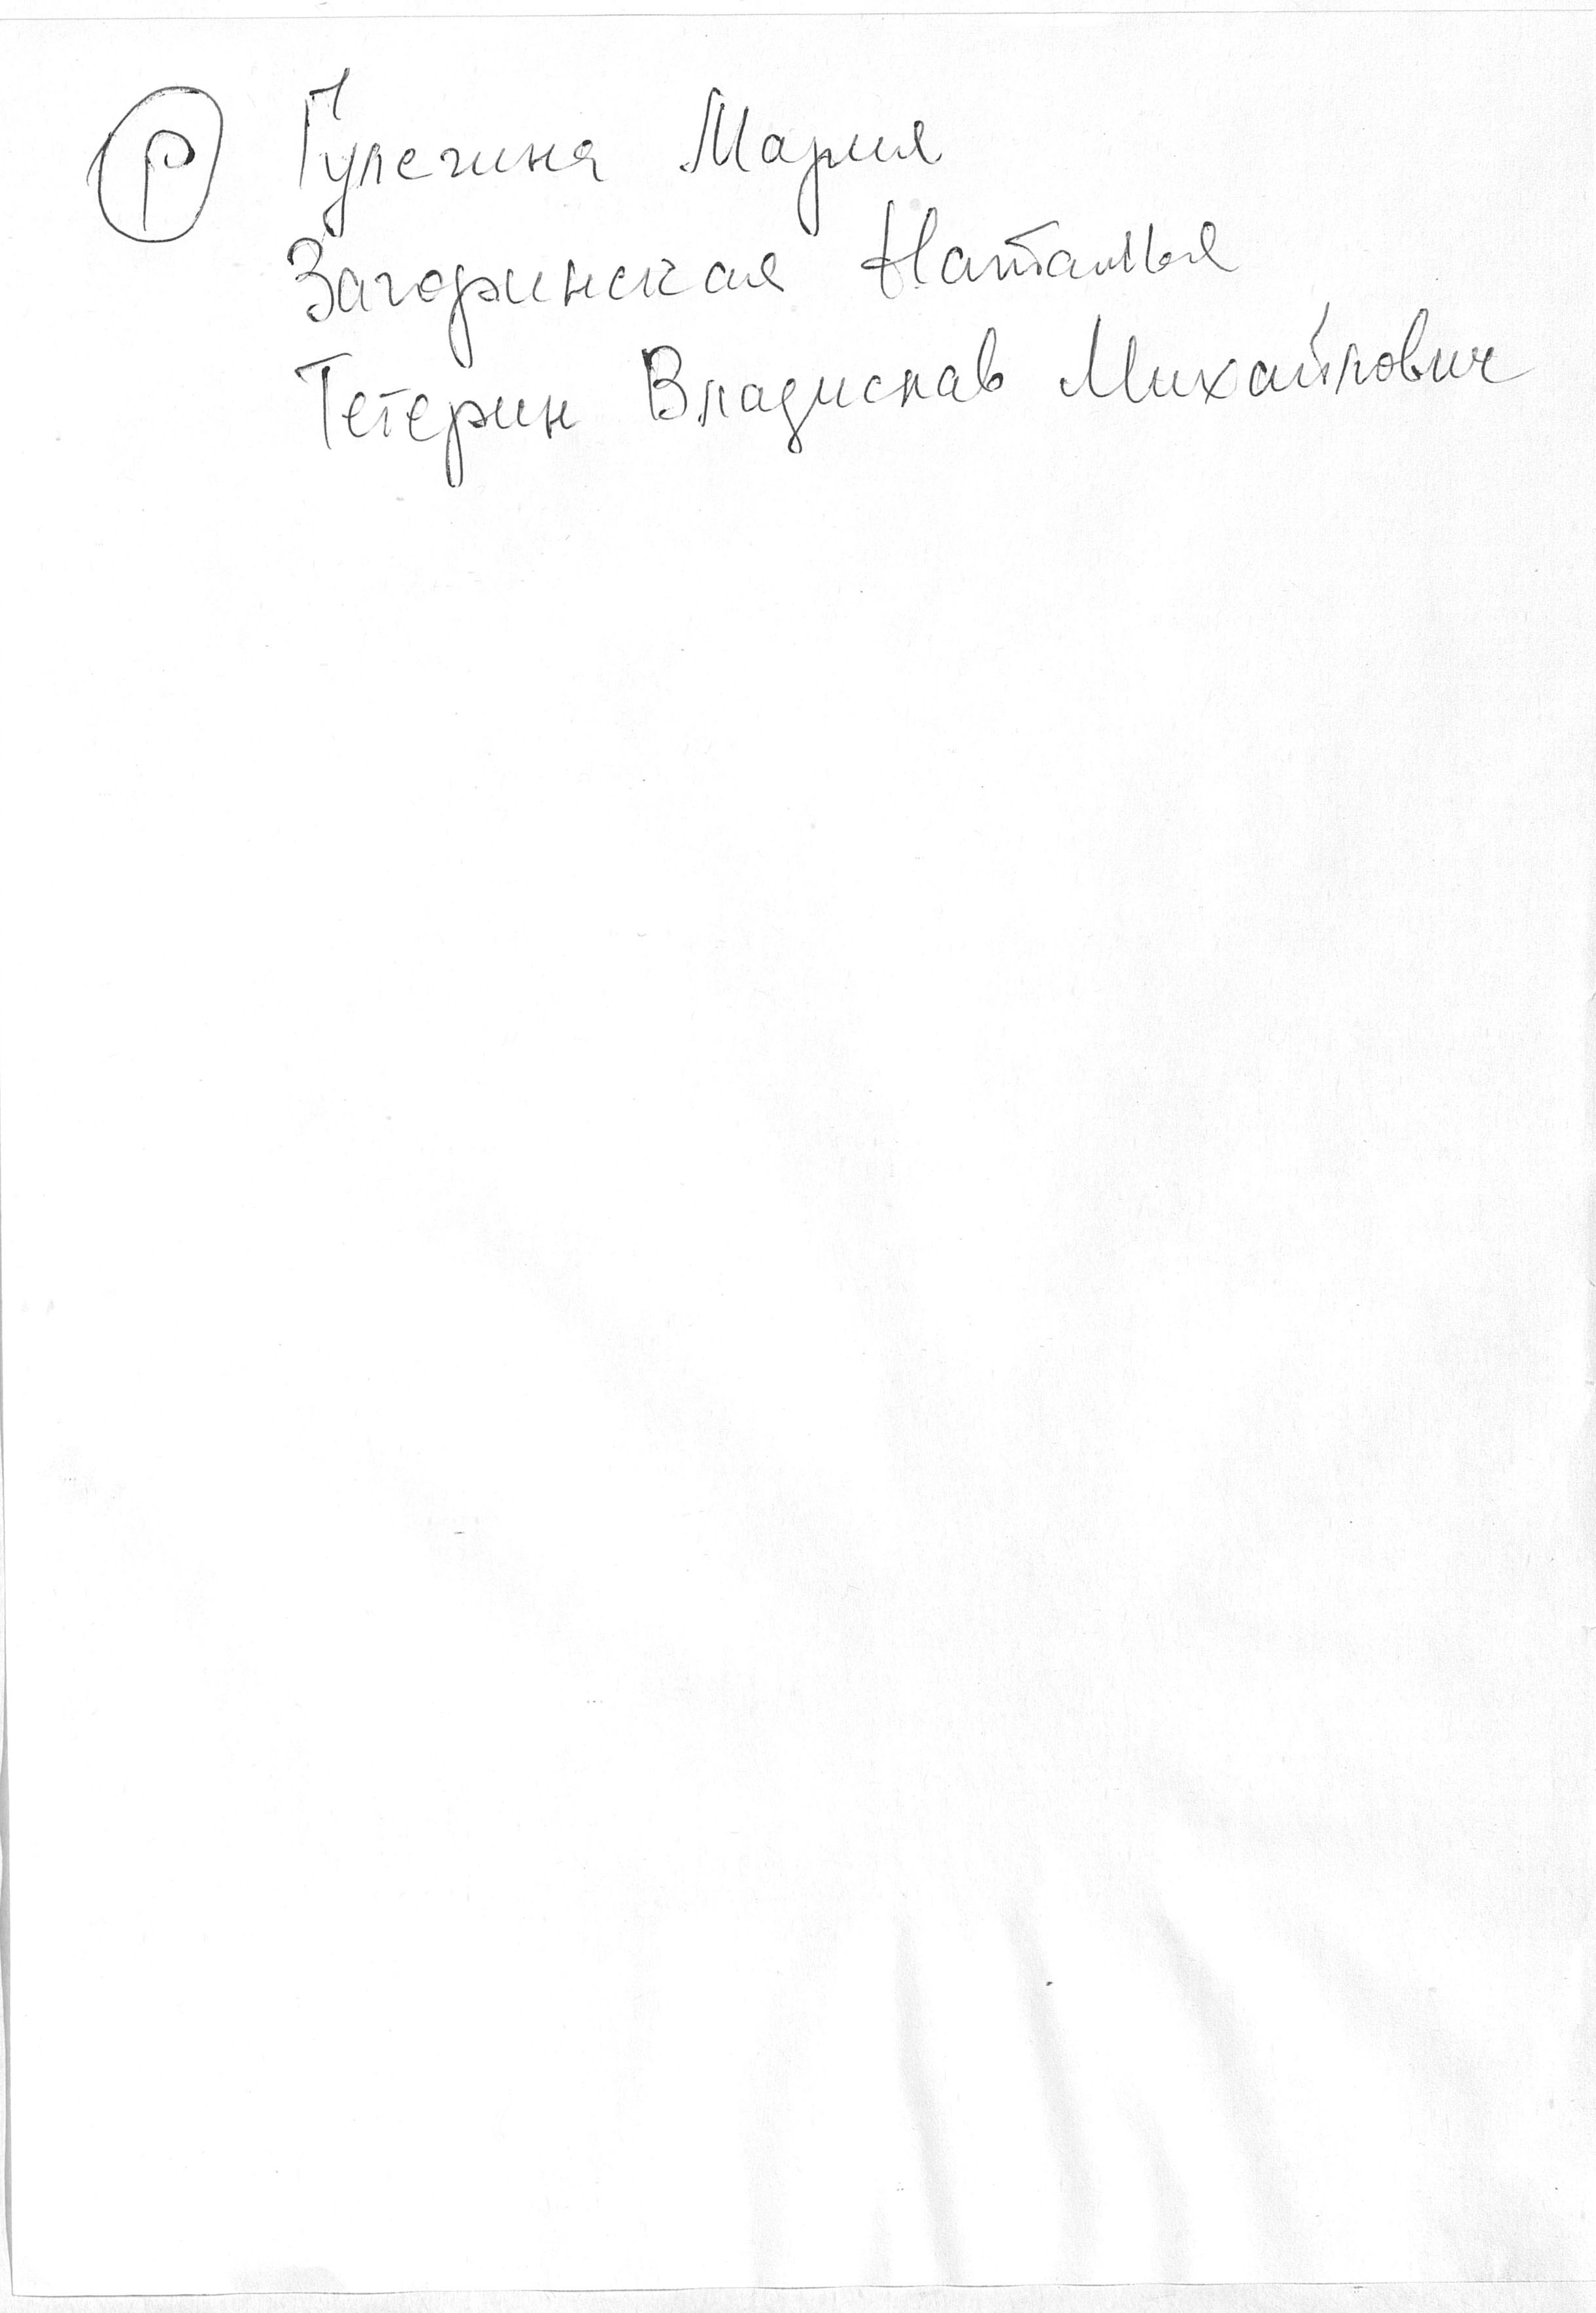 Р Гулегина Мария
Загоринская Наталья
Тетерин Владислав Михайлович